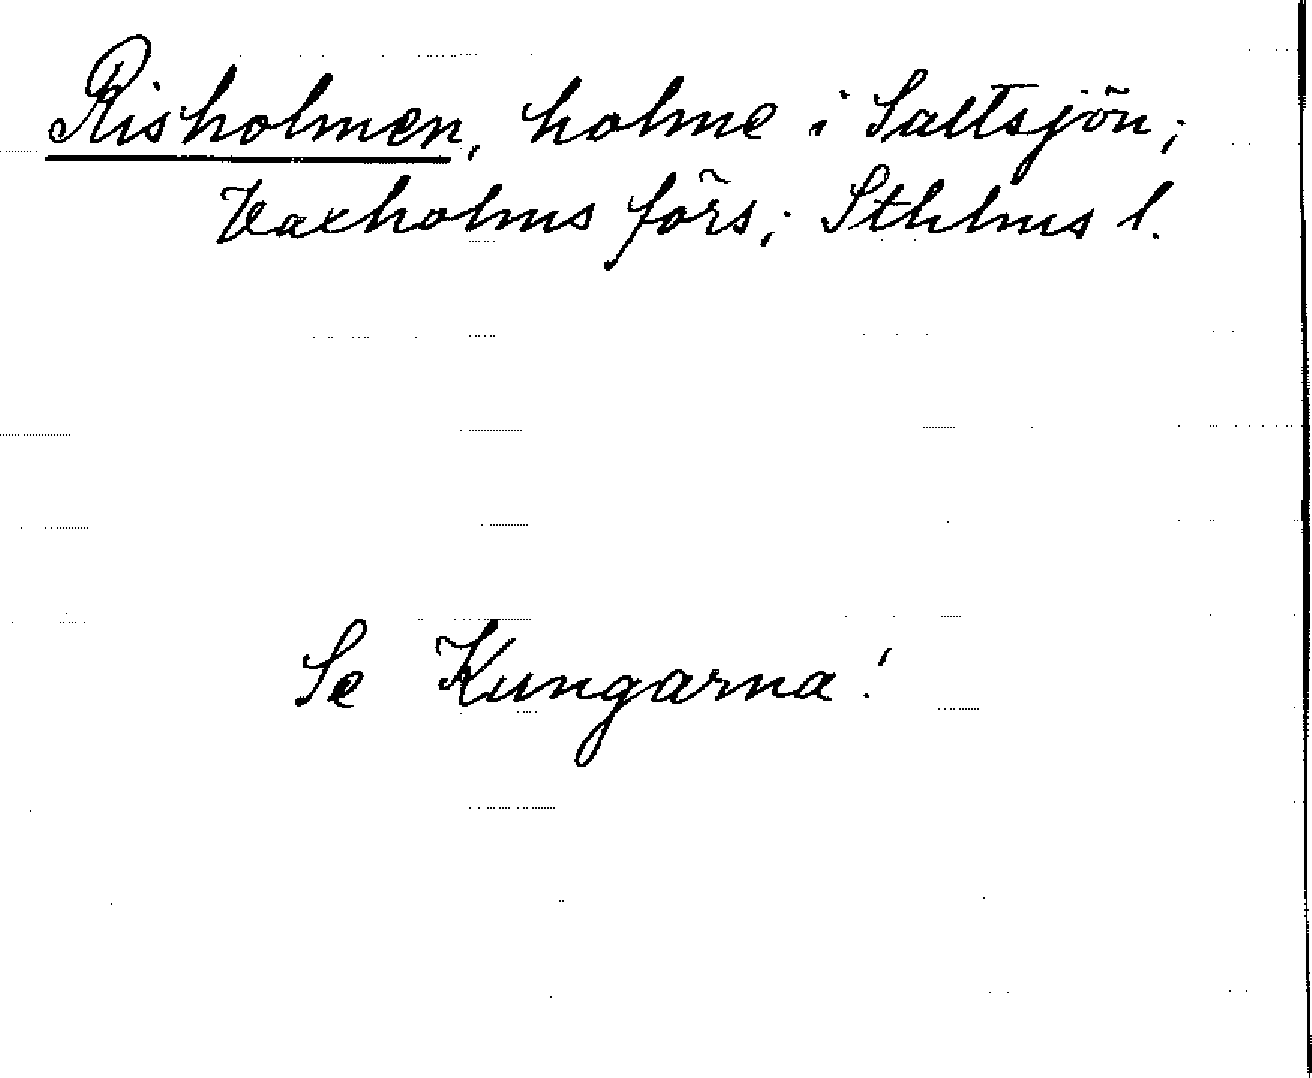 Risholmen, holme i Saltsjön;
Vaxholms förs; Sthlms l.
Se Kungarna!